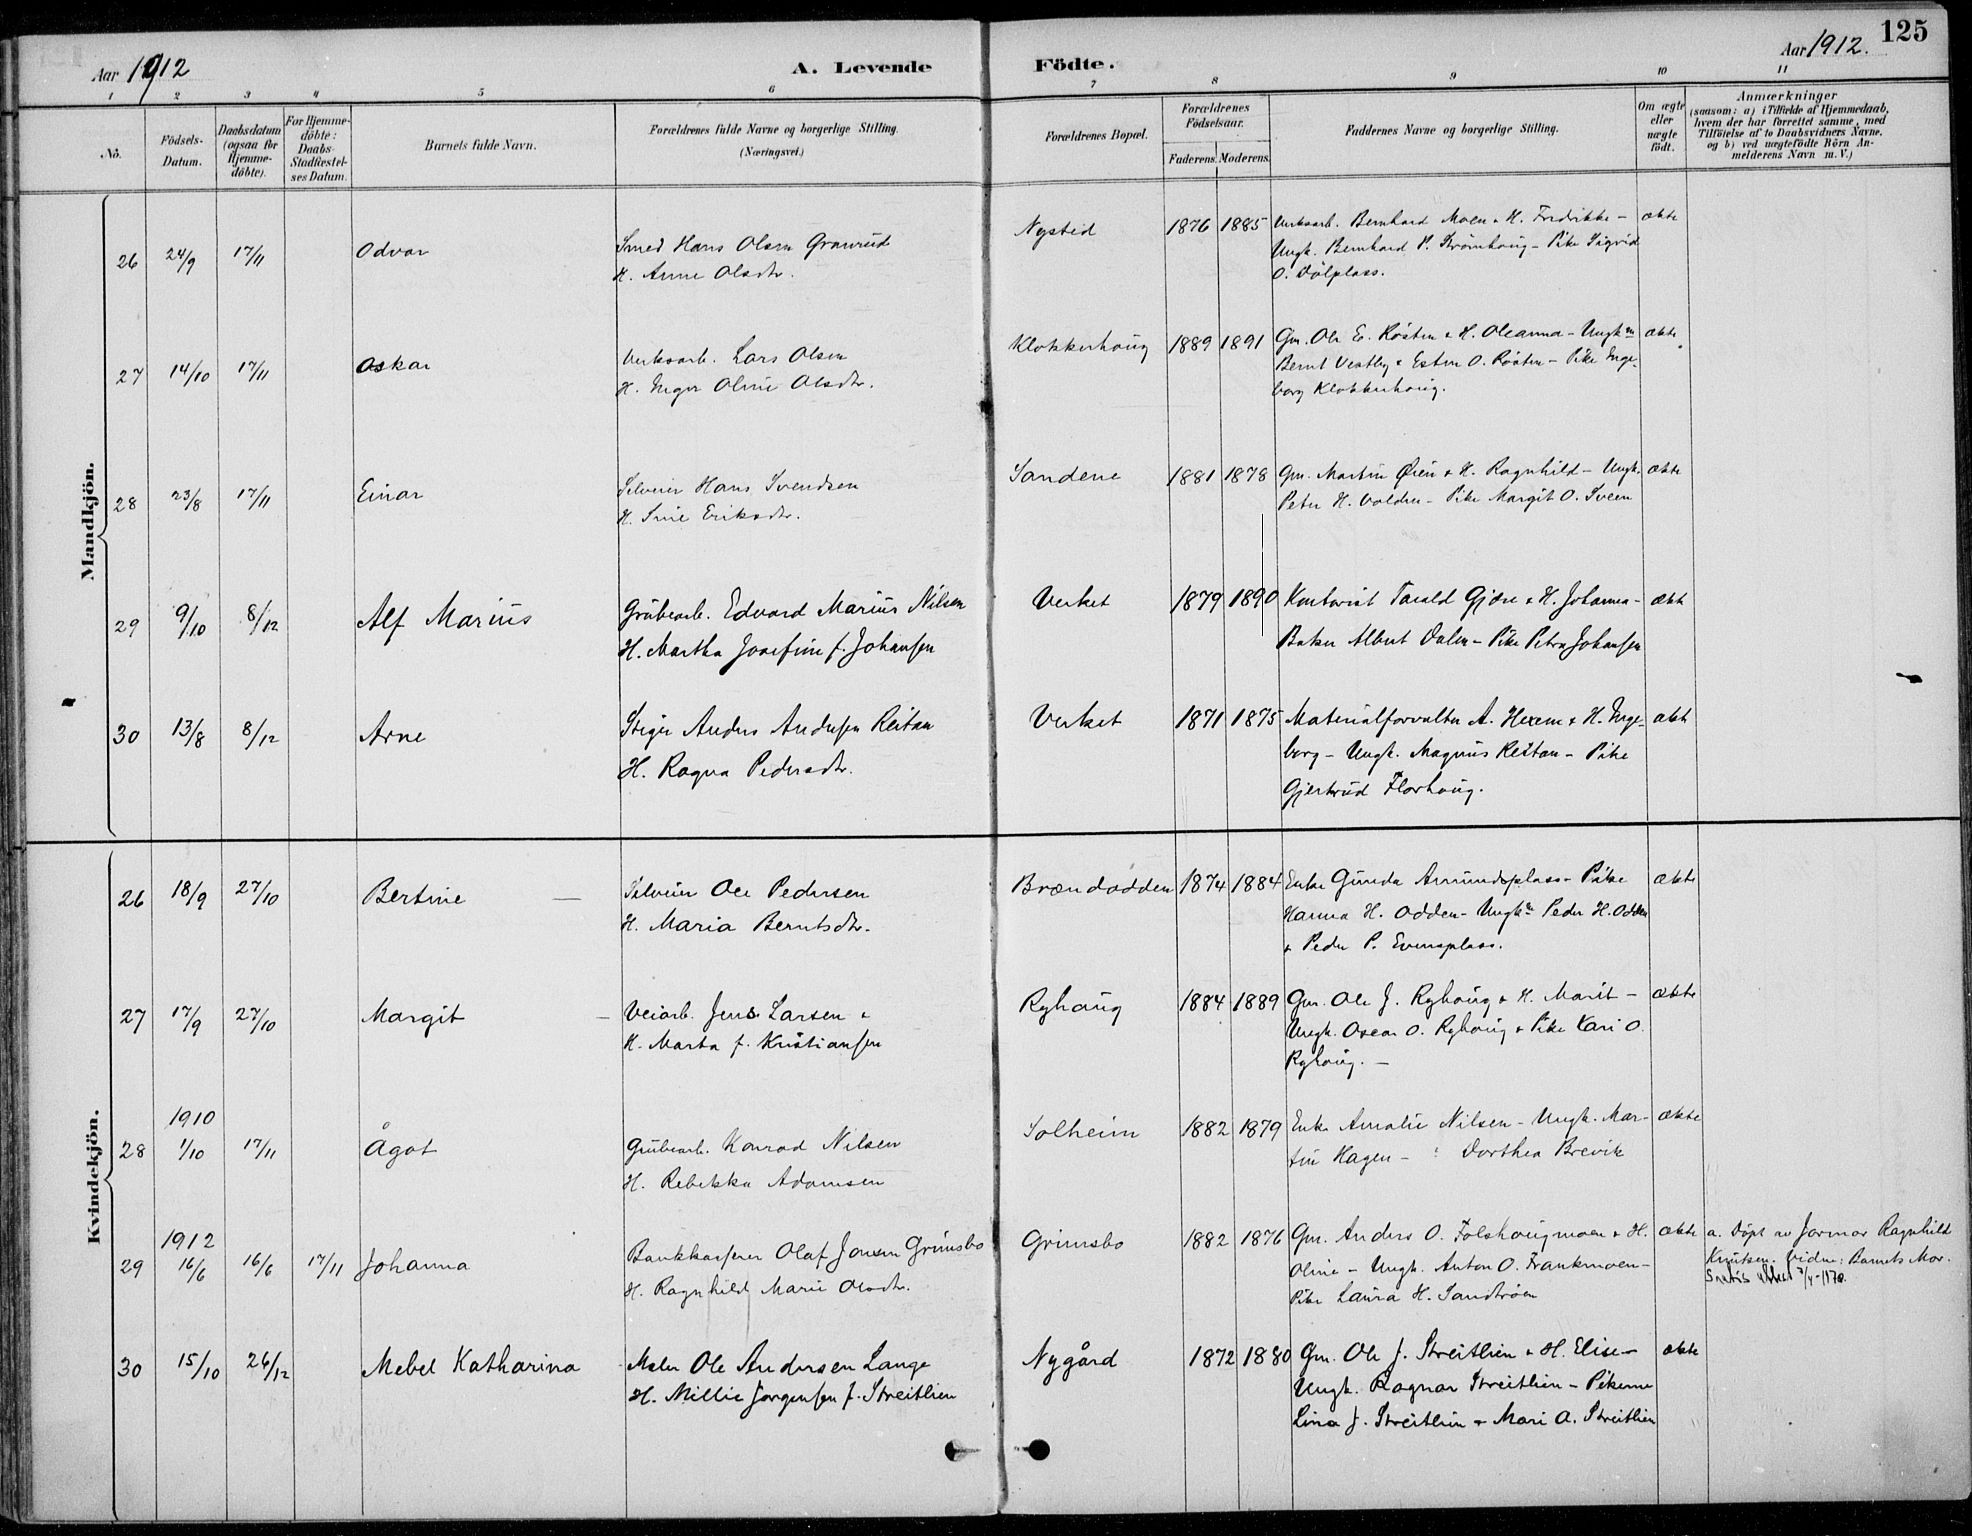 Aar 1912
A. Levende Födte.
Aar 1912. 125
1 2 3 4 5 6 7 8 9 10 11
Nò.
Födsels-Datum.
Daabsdatum (ogsaa for Hjemme-döbte).
For Hjemme-döbte: Daabs-Stadfæstel-ses Datum.
Barnets fulde Navn.
Forældrenes fulde Navne og borgerlige Stilling.
(Næringsvei.)
Forældrenes Bopæl.
Forældrenes Födselsaar.
Faderens. Moderens.
Faddernes Navne og borgerlige Stilling.
Om ægte eller uægte födt.
Anmærkninger
(saasom: a) i Tilfælde af Hjemmedaab,
hvem der har forrettet samme, med
Tilföielse af to Daabsvidners Navne,
og b) ved uægtefödte Börn An-
melderens Navn m. V.)
Mandkjön.
26 24/9 17/11 Odvar
Smed Hans Olsen Granrud
H. Anne Olsdtr.
Nystid 1876 1885
Verksarb. Bernhard Moen & H. Fredrikke -
Ungk. Bernhard P. Strömhaug - Pike Sigrid
O. Dölplass.
ækte
27 14/10 17/11 Oskar
Verksarb. Lars Olsen
H. Inger Oline Olsdtr.
Klokkerhaug 1889 1891
Gm. Ole E. Røsten & H. Oleanna - Ungkm
Bernt Vestby & Esten O. Røsten - Pike Inge-
borg Klokkerhaug.
ækte
28 23/8 17/11 Einar
Selveier Hans Svendsen
H. Sine Eriksdtr.
Sandene 1881 1878
Gm. Martin Øien & H. Ragnhild - Ungk.
Peter H. Volden - Pike Margit O. Sveen
ækte
29 9/10 8/12 Alf Marius
Grubearb. Edvard Marius Nilsen
H. Martha Josefine f. Johansen
Verket 1879 1890
Kontorist Tarald Gjöse & H. Johanna -
Baker Albert Dalen - Pike Petra Johansen
ækte
30 13/8 8/12 Arne
Stiger Anders Andersen Reitan
H. Ragna Pedersdtr.
Verket 1871 1875
Materialforvalter A. Hexem & H. Inge-
borg - Ungk. Magnus Reitan - Pike
Gjertrud Florhaug.
ækte
Kvindekjön.
26 18/9 27/10 Bertine
Selveier Ole Pedersen
H. Maria Berntsdtr.
Brændodden 1874 1884
Enke Gunda Amundsplass - Pike
Hanna H. Odden - Ungkm Peder H. Odden
& Peder P. Evensplass.
ækte
27 17/9 27/10 Margit
Veiarb. Jens Larsen &
H. Marta f. Kristiansen
Ryhaug 1884 1889
Gm. Ole J. Ryhaug & H. Marit -
Ungk. Oscar O. Ryhaug & Pike Kari O.
Ryhaug. -
ækte
28 1910 1/10 17/11 Ågot
Grubearb. Konrad Nilsen
H. Rebekka Adamsen
Solheim 1882 1879
Enke Amalie Nilsen - Ungk. Mar-
tin Hagen - Dorthea Brevik
ækte
29 1912 16/6 16/6 17/11 Johanna
Bankkasserer Olaf Jonsen Grimsbo
H. Ragnhild Marie Olsdtr.
Grimsbo 1882 1876
Gm. Anders O. Folshaugmoen & H.
Oline - Ungk. Anton O. Frankmoen -
Pike Laura H. Sandtrøen
ækte
a. Døpt av Jormor Ragnhild
Knutsen. Vidne: Barnets Mor.
30 15/10 26/12 Mebel Katharina
Maler Ole Andersen Lange
H. Millie Jørgensen f. Streitlien
Nygård 1872 1880
Gm. Ole J. Streitlien & H. Elise -
Ungk. Ragnar Streitlien - Pikerne
Lina J. Streitlien & Mari A. Streitlien
ækte